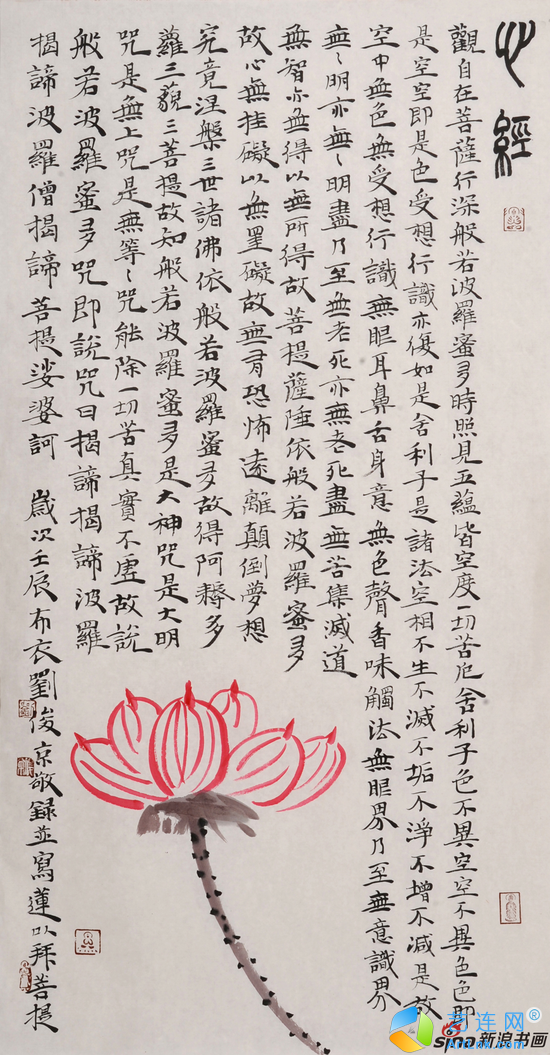 心經
觀自在菩薩行深般若波羅蜜多時照見五蘊皆空度一切苦厄舍利子色不異空空不異色色即
是空空即是色受想行識亦復如是舍利子是諸法空相不生不滅不垢不淨不增不减是故
空中無色無受想行識無眼耳鼻舌身意無色聲香味觸法無眼界乃至無意識界
無〻明亦無〻明盡乃至無老死亦無老死盡無苦集滅道
無智亦無得以無所得故菩提薩埵依般若波羅蜜多
故心無挂礙以無罣礙故無有恐怖遠離顛倒夢想
究竟涅槃三世諸佛依般若波羅蜜多故得阿耨多
蘿三藐三菩提故知般若波羅蜜多是大神咒是大明
咒是無上咒是無等〻咒能除一切苦真實不虛故說
般若波羅蜜多咒即說咒曰揭諦揭諦波羅
揭諦波羅僧揭諦菩提娑婆訶 歲次壬辰布衣劉俊京敬録並寫蓮以拜菩提
艺连网
sina新浪书画